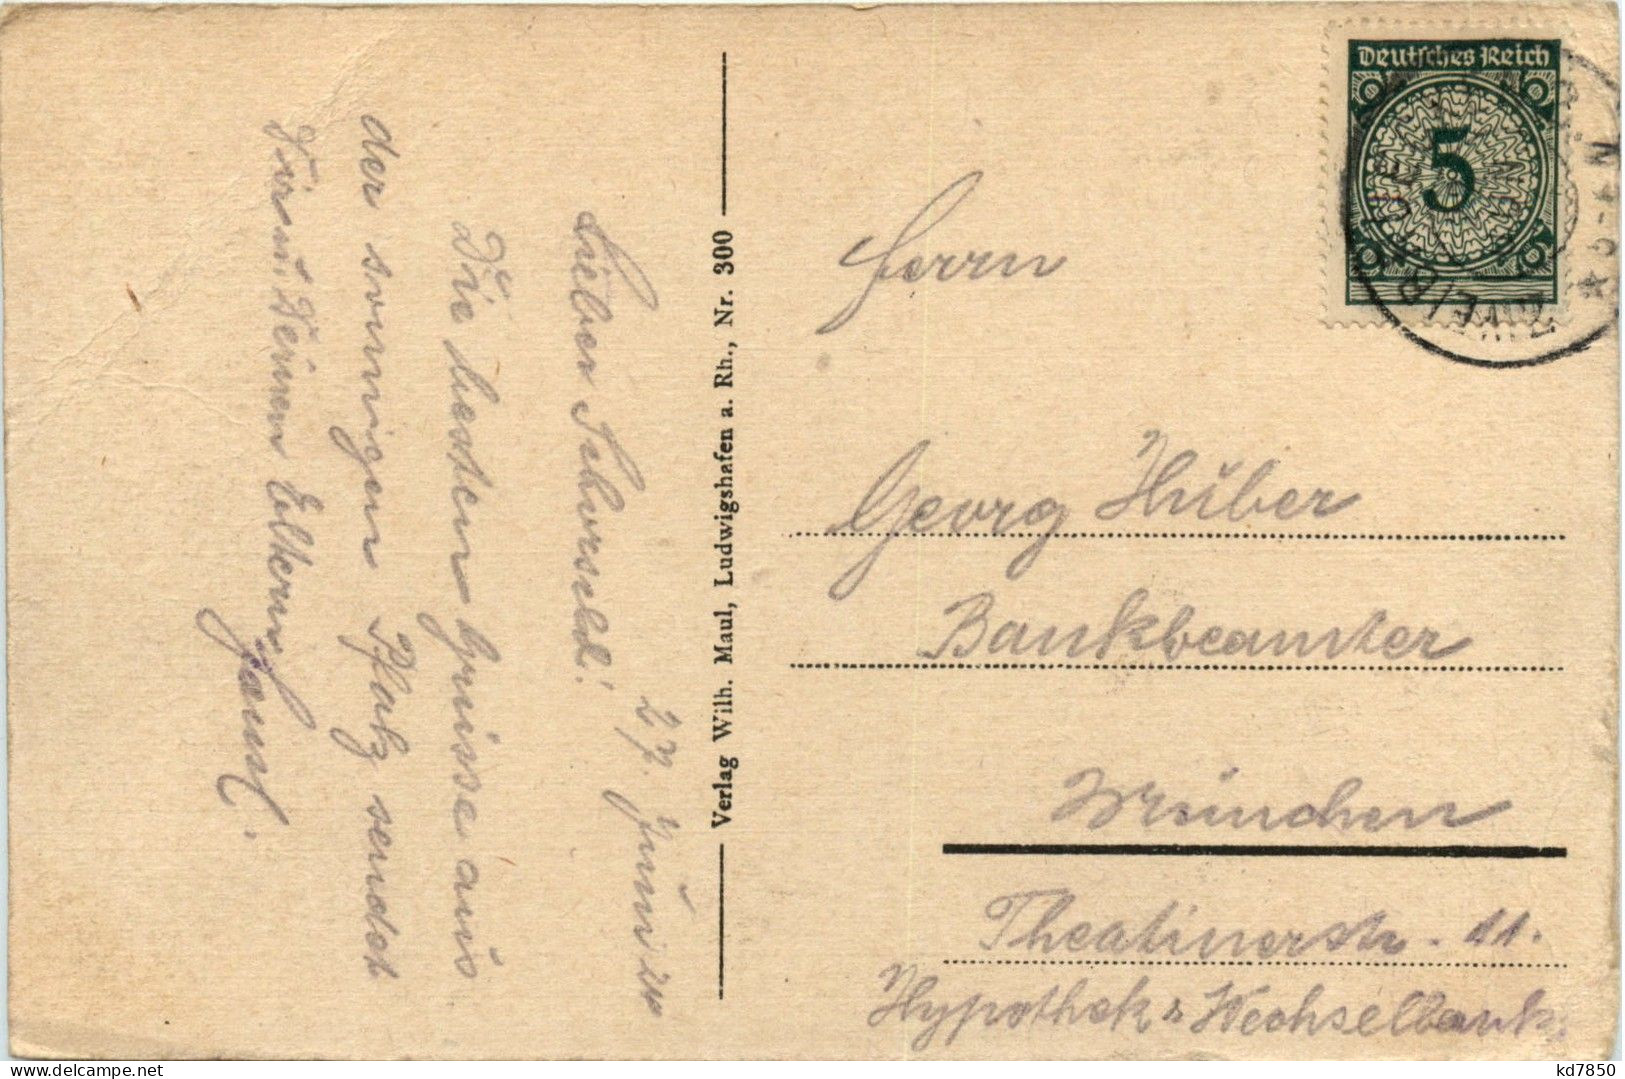 27. Juni 24
Lieber Schorschl!
Die besten Grüsse aus
der sonnigen Pfalz sendet
Dir u. Deinen Eltern
Hansl.
Verlag Wilh. Maul, Ludwigshafen a. Rh., Nr. 300
Deutsches Reich
5
ZWEIBRUECKEN
Herrn
Georg Huber
Bankbeamter
München
Theatinerstr. 11.
Hypothek & Wechselbank.
kd7850